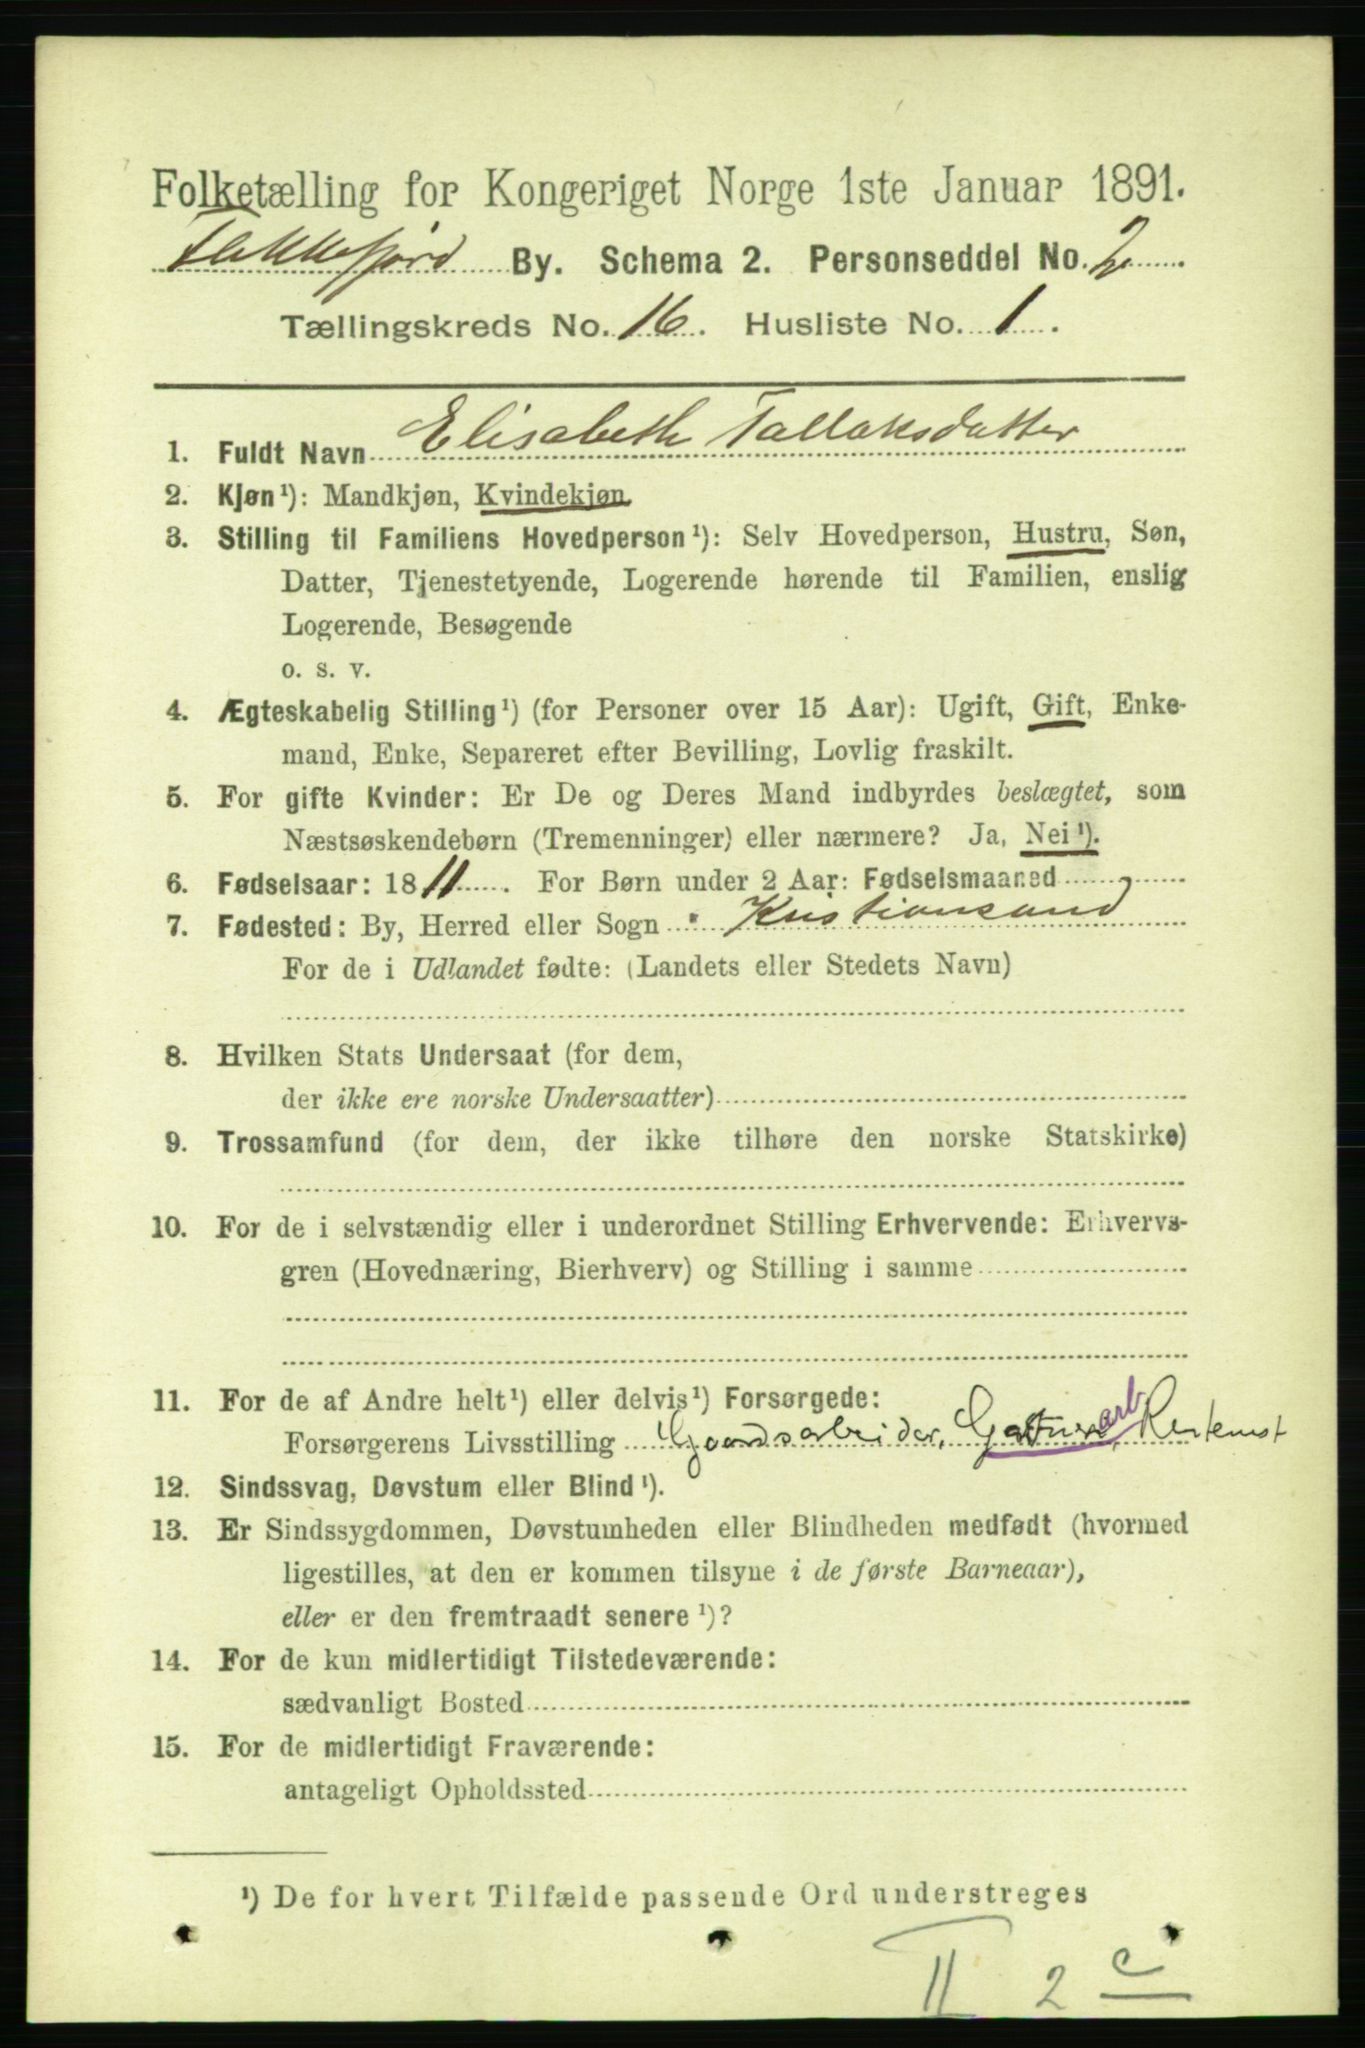 Folketælling for Kongeriget Norge 1ste Januar 1891.
Flekkefjord By. Schema 2. Personseddel No. 2
Tællingskreds No. 16. Husliste No. 1.
1. Fuldt Navn Elisabeth Tallaksdatter
2. Kjøn¹): Mandkjøn, Kvindekjøn
3. Stilling til Familiens Hovedperson¹): Selv Hovedperson, Hustru, Søn,
Datter, Tjenestetyende, Logerende hørende til Familien, enslig
Logerende, Besøgende
o. s. v.
4. Ægteskabelig Stilling¹) (for Personer over 15 Aar): Ugift, Gift, Enke-
mand, Enke, Separeret efter Bevilling, Lovlig fraskilt.
5. For gifte Kvinder: Er De og Deres Mand indbyrdes beslægtet, som
Næstsøskendebørn (Tremenninger) eller nærmere? Ja, Nei¹).
6. Fødselsaar: 1811. For Børn under 2 Aar: Fødselsmaaned
7. Fødested: By, Herred eller Sogn Kristiansand
For de i Udlandet fødte: (Landets eller Stedets Navn)
8. Hvilken Stats Undersaat (for dem,
der ikke ere norske Undersaatter)
9. Trossamfund (for dem, der ikke tilhøre den norske Statskirke)
10. For de i selvstændig eller i underordnet Stilling Erhvervende: Erhvervs-
gren (Hovednæring, Bierhverv) og Stilling i samme
11. For de af Andre helt¹) eller delvis¹) Forsørgede:
Forsørgerens Livsstilling Gaardsarbeider, arb
12. Sindssvag, Døvstum eller Blind¹).
13. Er Sindssygdommen, Døvstumheden eller Blindheden medfødt (hvormed
ligestilles, at den er kommen tilsyne i de første Barneaar),
eller er den fremtraadt senere¹)?
14. For de kun midlertidigt Tilstedeværende:
sædvanligt Bosted
15. For de midlertidigt Fraværende:
antageligt Opholdssted
¹) De for hvert Tilfælde passende Ord understreges
II 2 c